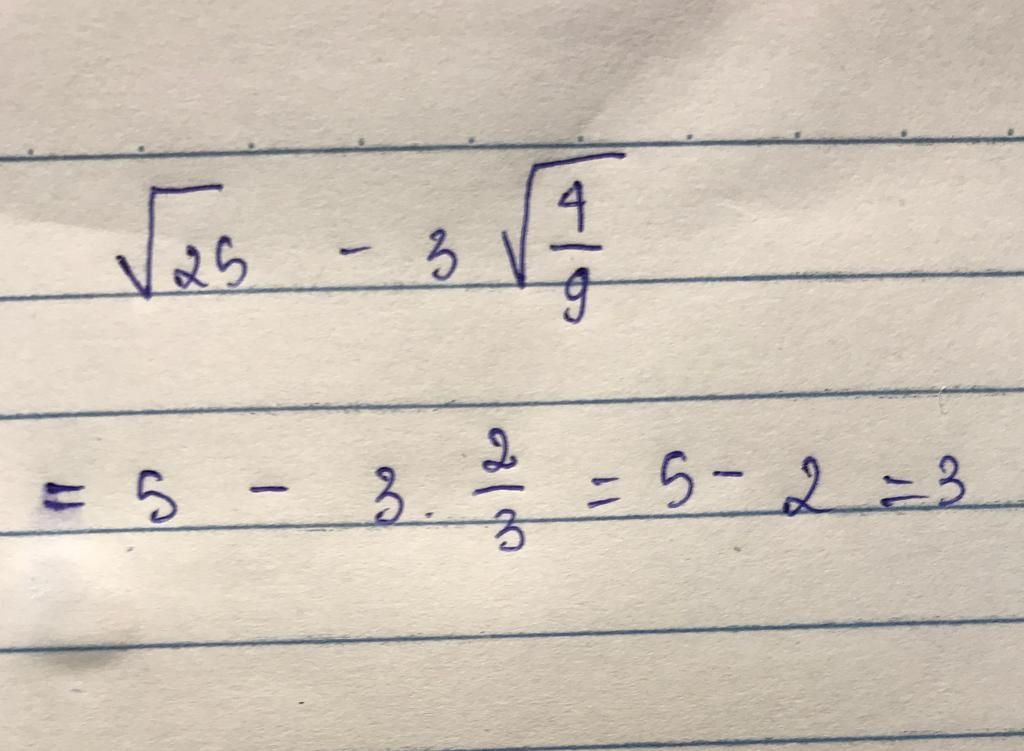 √25 - 3 √(4/9)
= 5 - 3 . 2/3 = 5 - 2 = 3